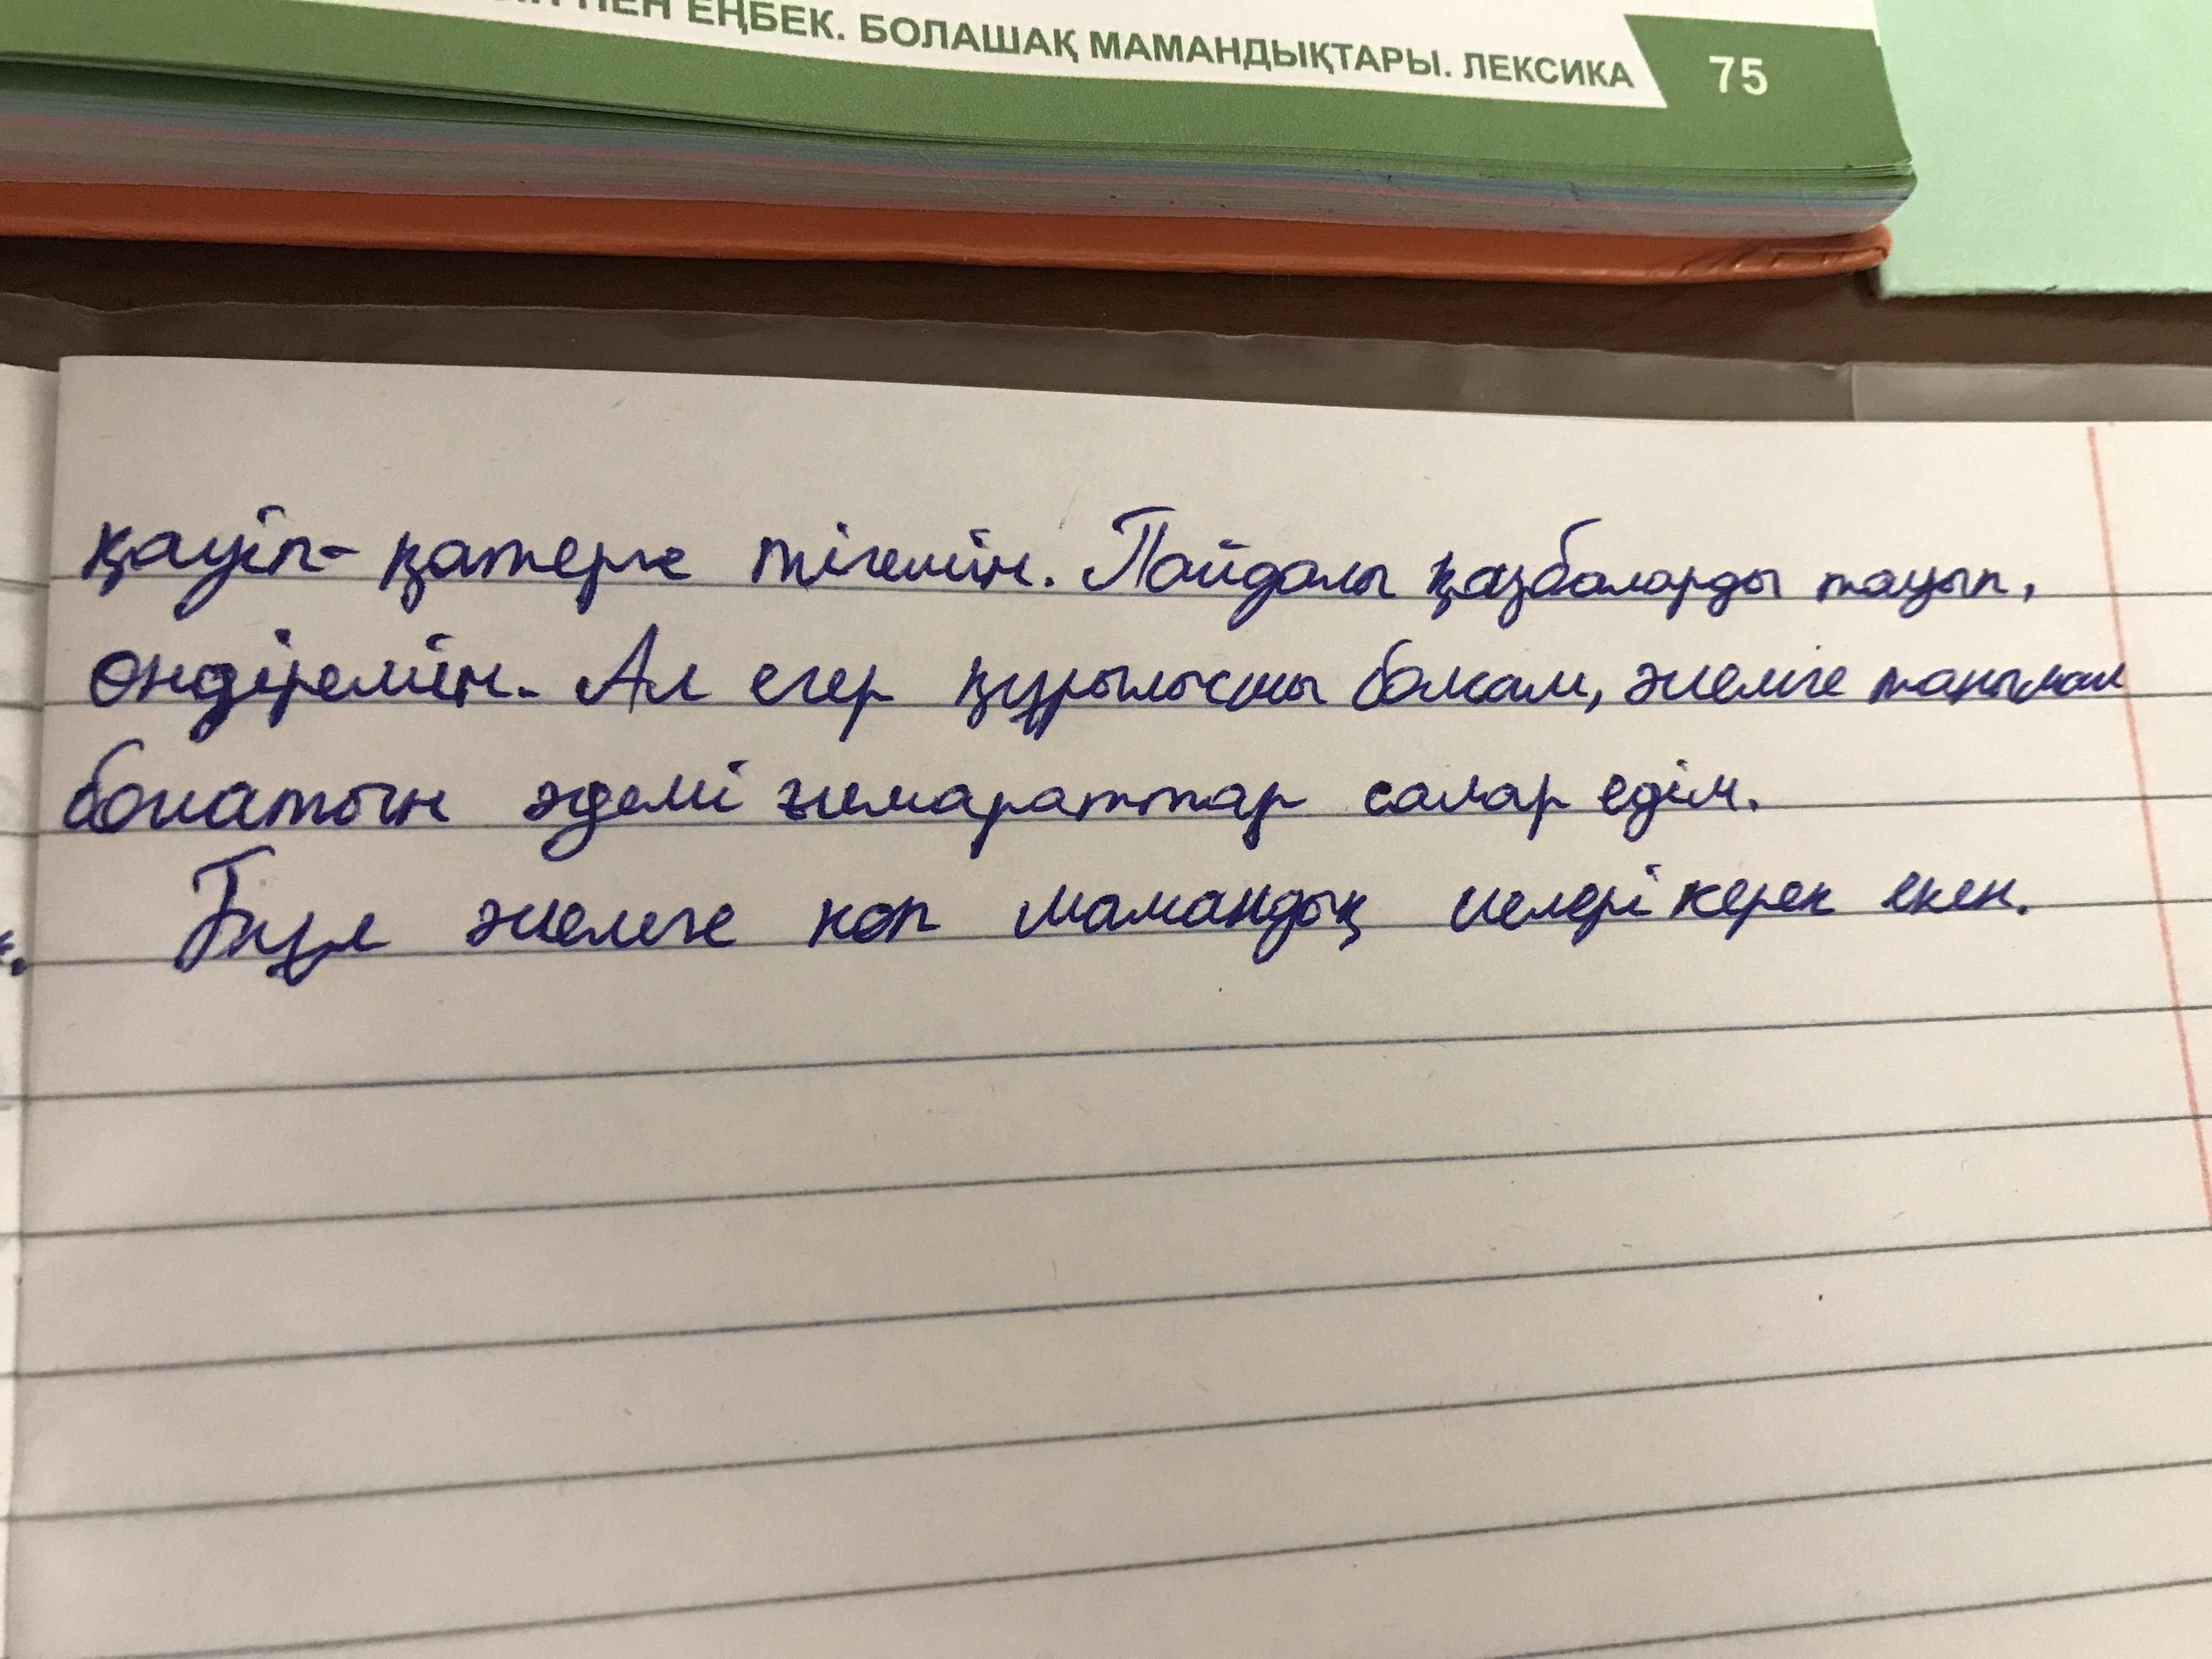 ПЕН ЕҢБЕК. БОЛАШАҚ МАМАНДЫҚТАРЫ. ЛЕКСИКА 75
қауіп-қатерге тігемін. Пайдалы қазбаларды тауып,
өндіремін. Ал егер құрылысшы болсам, әлемге танымал
болатын әдемі ғимараттар салар едім.
Бұл әлемге көп мамандық иелері керек екен.